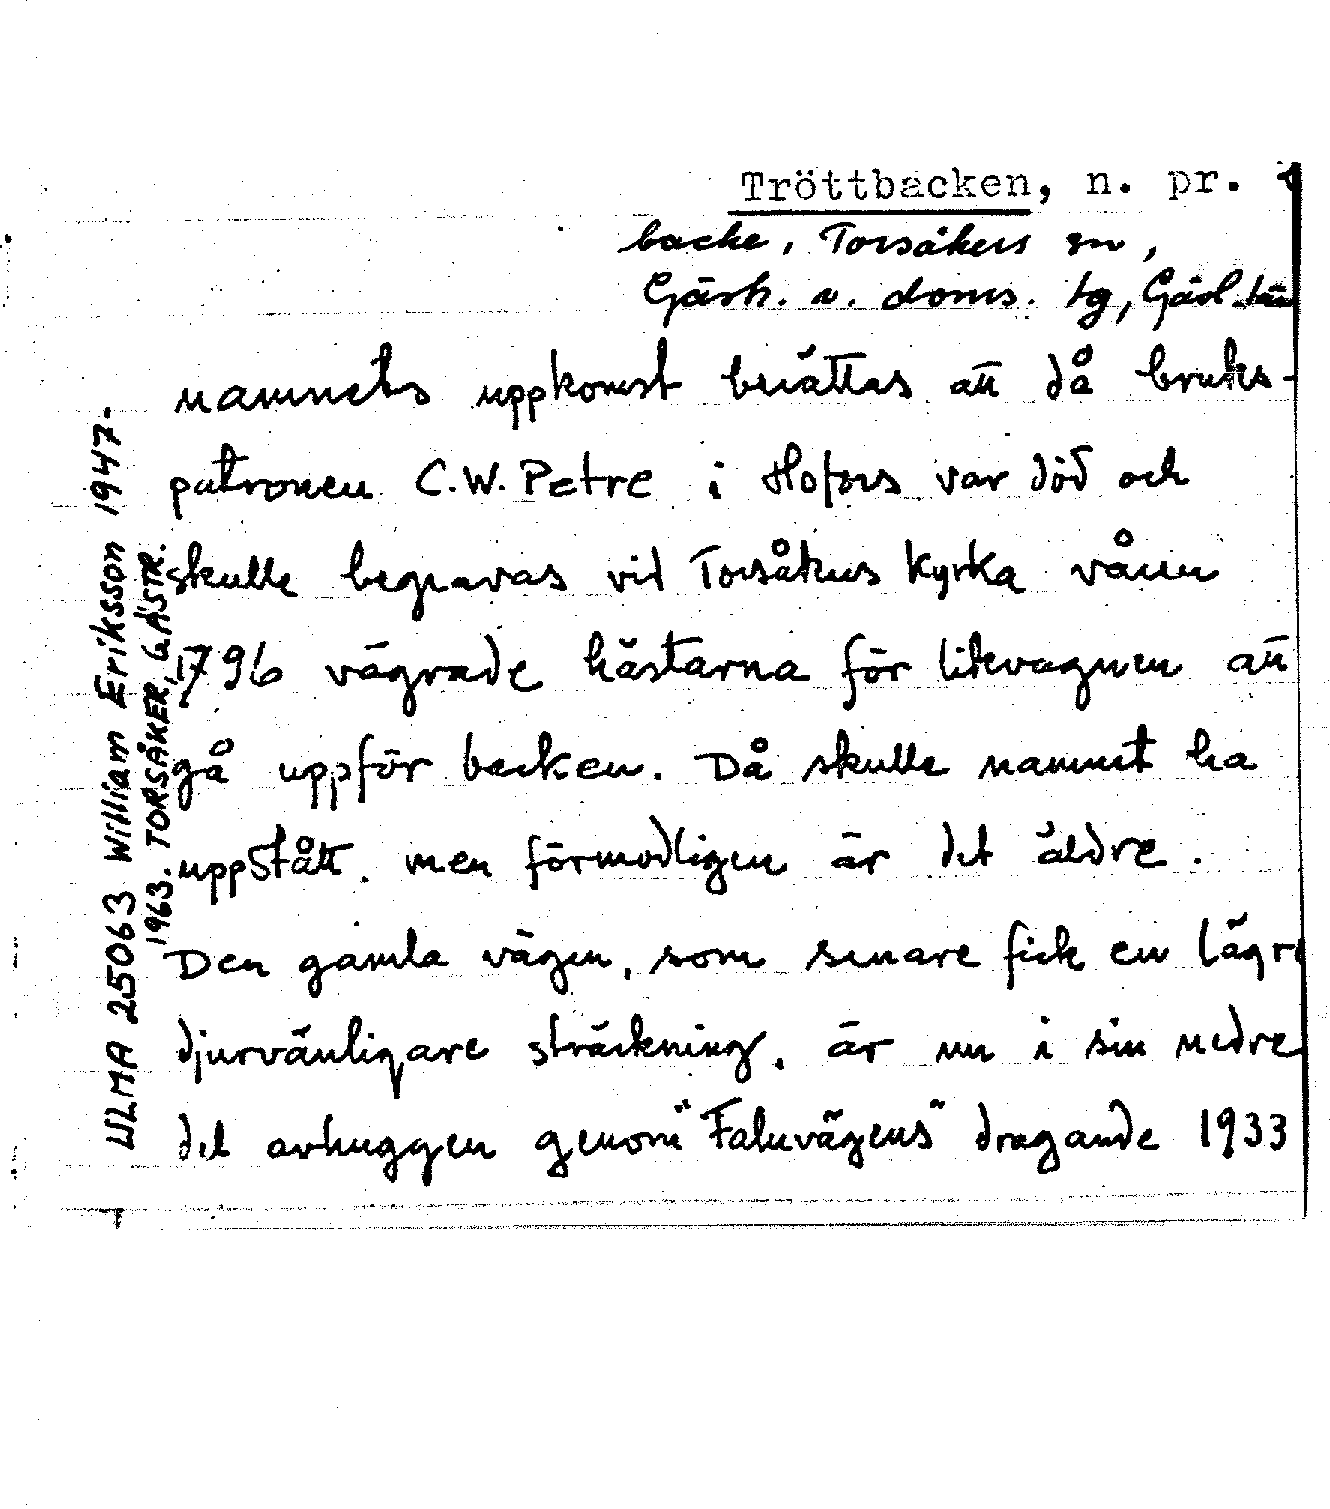 Tröttbacken, n. pr.
backe, Torsåkers sn,
Gästr. v. doms. tg, Gävl. län
namnets uppkomst berättas att då bruks-
patronen C.W. Petre i Hofors var död och
skulle begravas vid Torsåkers Kyrka våren
1796 vägrade hästarna för likvagnen att
gå uppför backen. Då skulle namnet ha
uppstått. men förmodligen är det äldre.
Den gamla vägen, som senare fick en lägre
djurvänligare sträckning, är nu i sin nedre
del avhuggen genom "Faluvägens" dragande 1933
ULMA 25063 William Eriksson 1947-
1963. TORSÅKER, GÄSTR.